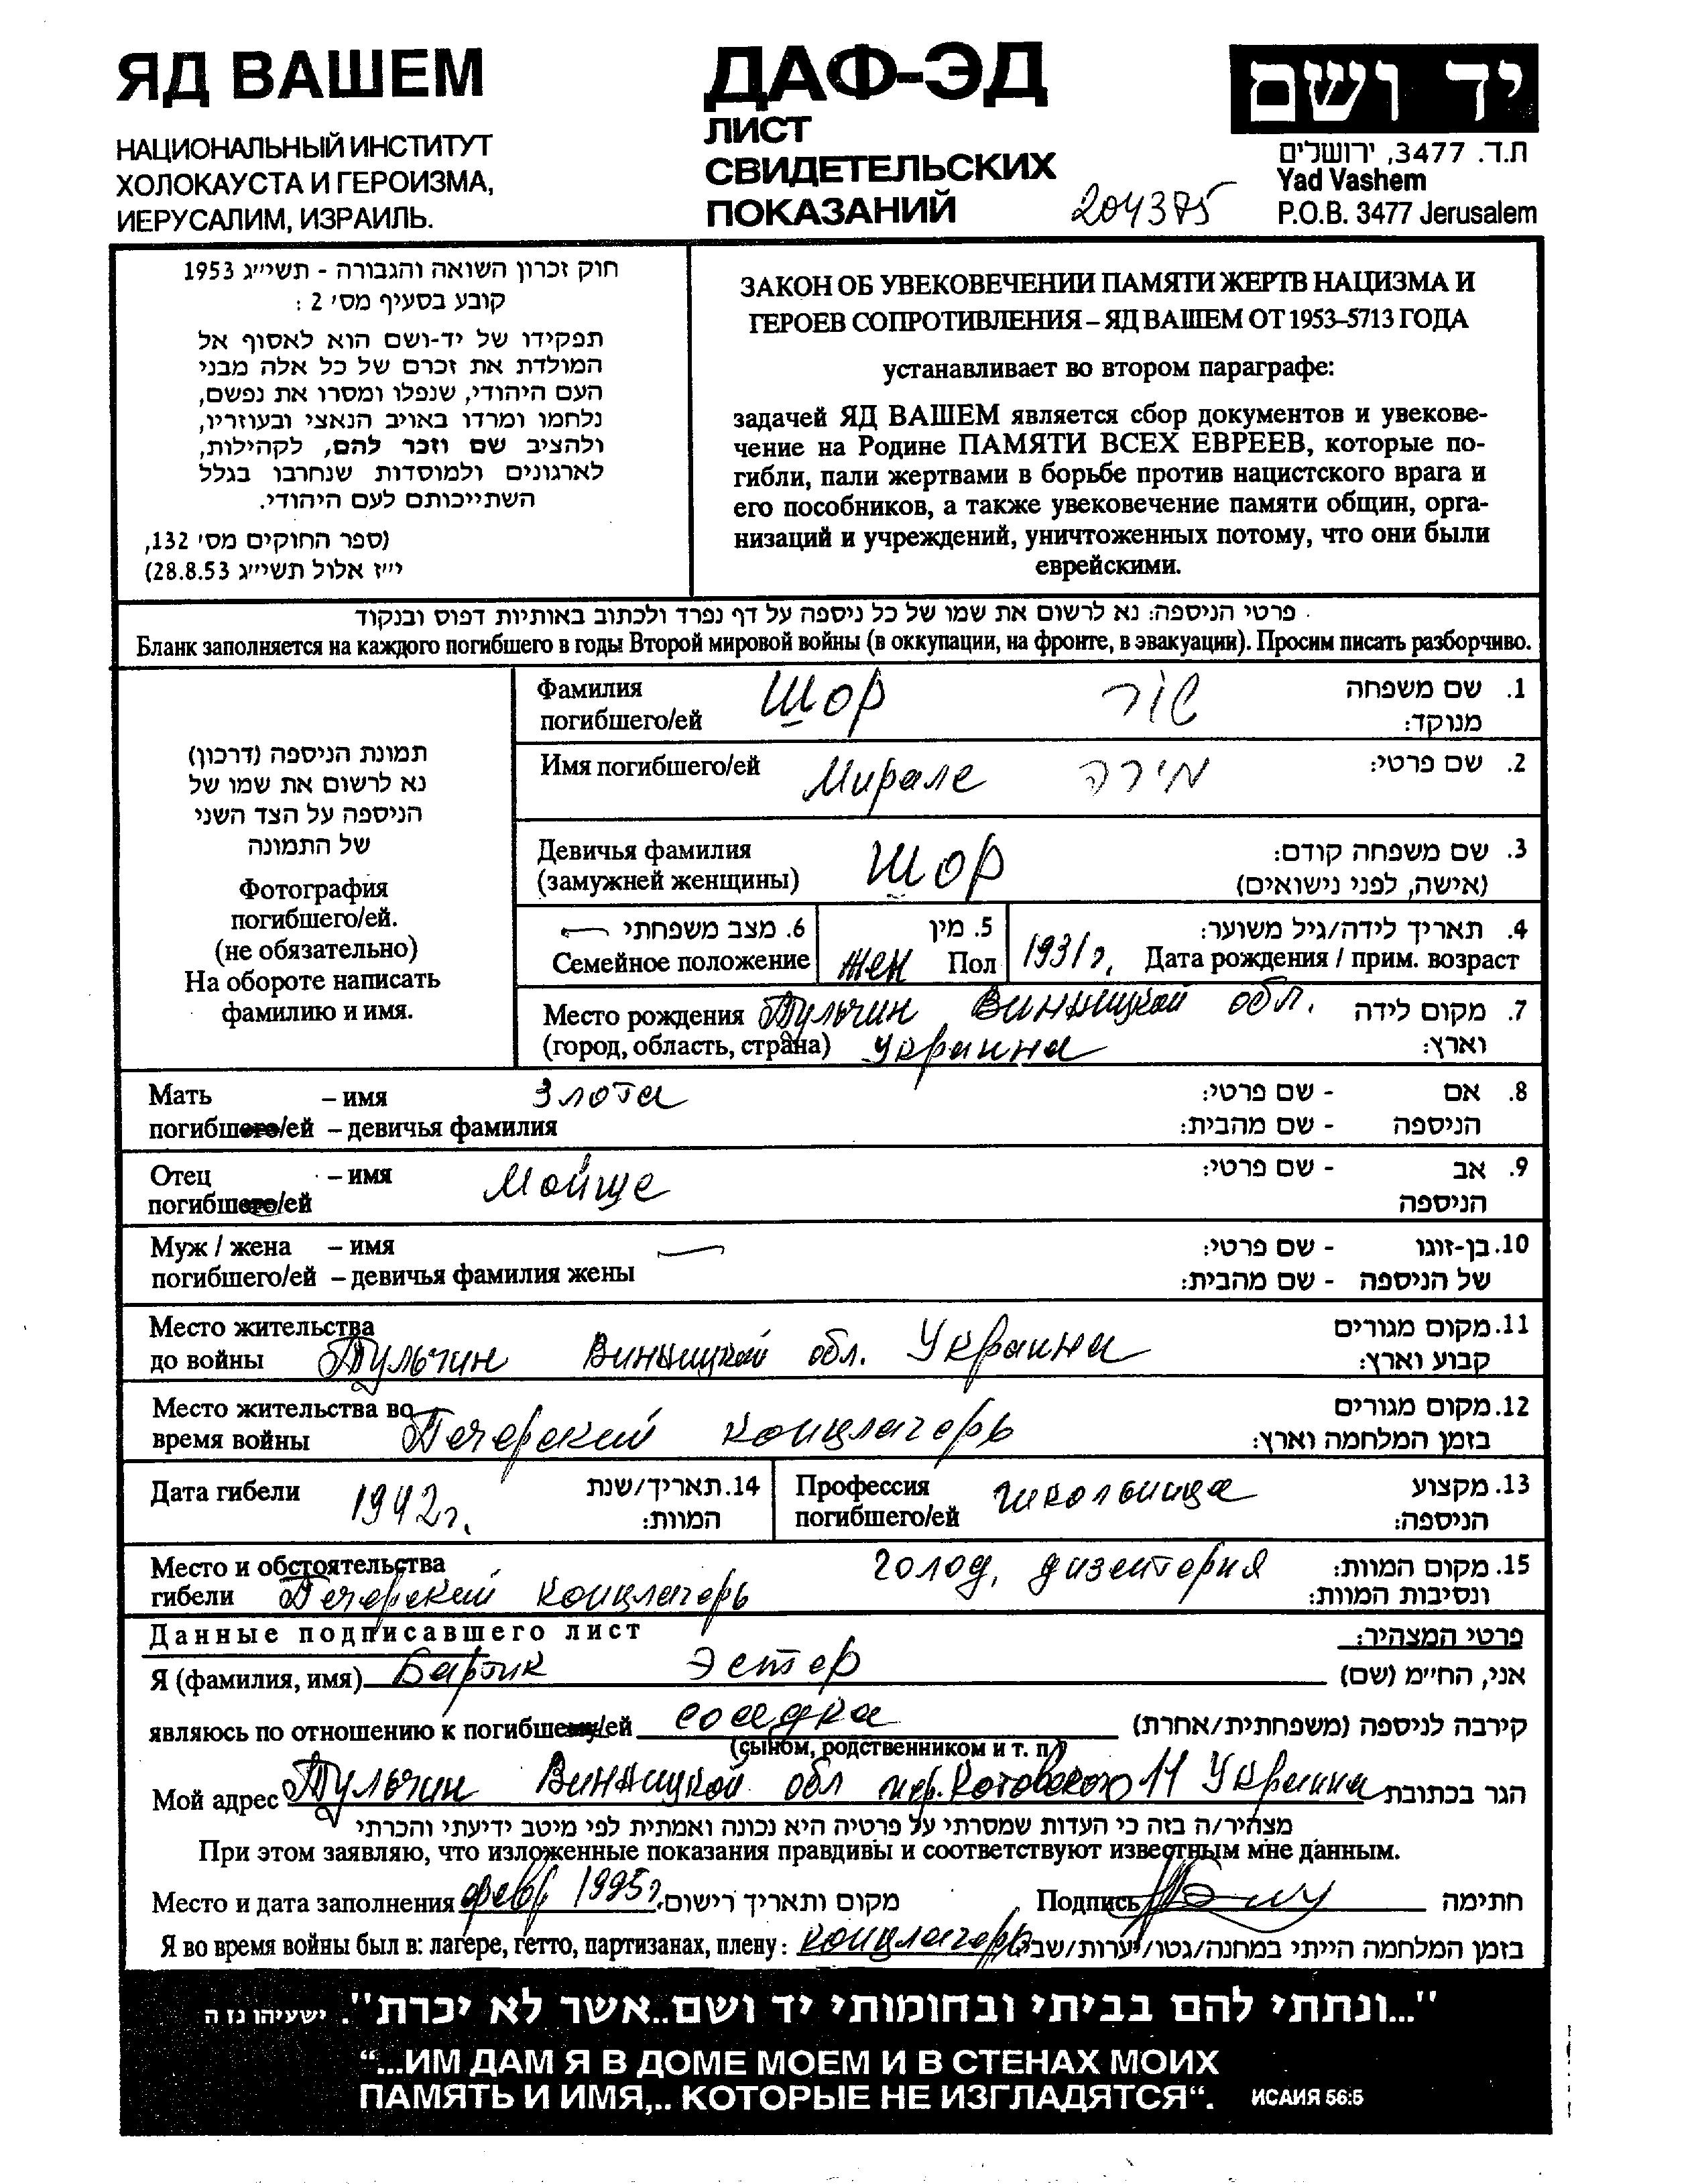 ЯД ВАШЕМ
НАЦИОНАЛЬНЫЙ ИНСТИТУТ
ХОЛОКАУСТА И ГЕРОИЗМА,
ИЕРУСАЛИМ, ИЗРАИЛЬ.
ДАФ-ЭД
ЛИСТ
СВИДЕТЕЛЬСКИХ
ПОКАЗАНИЙ
204375
יד ושם
ת.ד. 3477, ירושלים
Yad Vashem
P.O.B. 3477 Jerusalem
חוק זכרון השואה והגבורה - תשי״ג 1953
קובע בסעיף מס׳ 2 :
תפקידו של יד-ושם הוא לאסוף אל
המולדת את זכרם של כל אלה מבני
העם היהודי, שנפלו ומסרו את נפשם,
נלחמו ומרדו באויב הנאצי ובעוזריו,
ולהציב שם וזכר להם, לקהילות,
לארגונים ולמוסדות שנחרבו בגלל
השתייכותם לעם היהודי.
(ספר החוקים מס׳ 132,
י״ז אלול תשי״ג 28.8.53)
ЗАКОН ОБ УВЕКОВЕЧЕНИИ ПАМЯТИ ЖЕРТВ НАЦИЗМА И
ГЕРОЕВ СОПРОТИВЛЕНИЯ – ЯД ВАШЕМ ОТ 1953–5713 ГОДА
устанавливает во втором параграфе:
задачей ЯД ВАШЕМ является сбор документов и увекове-
чение на Родине ПАМЯТИ ВСЕХ ЕВРЕЕВ, которые по-
гибли, пали жертвами в борьбе против нацистского врага и
его пособников, а также увековечение памяти общин, орга-
низаций и учреждений, уничтоженных потому, что они были
еврейскими.
פרטי הניספה: נא לרשום את שמו של כל ניספה על דף נפרד ולכתוב באותיות דפוס ובנקוד
Бланк заполняется на каждого погибшего в годы Второй мировой войны (в оккупации, на фронте, в эвакуации). Просим писать разборчиво.
תמונת הניספה (דרכון)
נא לרשום את שמו של
הניספה על הצד השני
של התמונה
Фотография
погибшего/ей.
(не обязательно)
На обороте написать
фамилию и имя.
Фамилия Шор שור 1. שם משפחה
погибшего/ей מנוקד:
Имя погибшего/ей Мирале מירה 2. שם פרטי:
Девичья фамилия Шор 3. שם משפחה קודם:
(замужней женщины) (אישה, לפני נישואים)
6. מצב משפחתי 5. מין 4. תאריך לידה/גיל משוער:
Семейное положение жен Пол 1931г. Дата рождения / прим. возраст
Место рождения Тульчин Винницкой обл. 7. מקום לידה
(город, область, страна) Украина וארץ:
Мать – имя Злота 8. אם - שם פרטי:
погибшего/ей – девичья фамилия הניספה - שם מהבית:
Отец – имя Мойше 9. אב - שם פרטי:
погибшего/ей הניספה
Муж / жена – имя — 10. בן-זוגו - שם פרטי:
погибшего/ей – девичья фамилия жены של הניספה - שם מהבית:
Место жительства 11. מקום מגורים
до войны Тульчин Винницкой обл. Украина קבוע וארץ:
Место жительства во 12. מקום מגורים
время войны Печерский концлагерь בזמן המלחמה וארץ:
Дата гибели 1942г. 14. תאריך/שנת Профессия школьница 13. מקצוע
המוות: погибшего/ей הניספה:
Место и обстоятельства голод, дизентерия 15. מקום המוות:
гибели Печерский концлагерь ונסיבות המוות:
Данные подписавшего лист פרטי המצהיר:
Я (фамилия, имя) Бартик Эстер אני, החי״מ (שם)
являюсь по отношению к погибшему/ей соседка קירבה לניספה (משפחתית/אחרת)
(сыном, родственником и т. п.)
Мой адрес Тульчин Винницкой обл пер. Котовского 11 Украина הגר בכתובת
מצהיר/ה בזה כי העדות שמסרתי על פרטיה היא נכונה ואמתית לפי מיטב ידיעתי והכרתי
При этом заявляю, что изложенные показания правдивы и соответствуют известным мне данным.
Место и дата заполнения февр 1995г. מקום ותאריך רישום Подпись חתימה
Я во время войны был в: лагере, гетто, партизанах, плену: концлагерь בזמן המלחמה הייתי במחנה/גטו/יערות/שבי
"...ונתתי להם בביתי ובחומותי יד ושם..אשר לא יכרת". ישעיהו נז ה
“...ИМ ДАМ Я В ДОМЕ МОЕМ И В СТЕНАХ МОИХ
ПАМЯТЬ И ИМЯ,.. КОТОРЫЕ НЕ ИЗГЛАДЯТСЯ“. ИСАИЯ 56:5